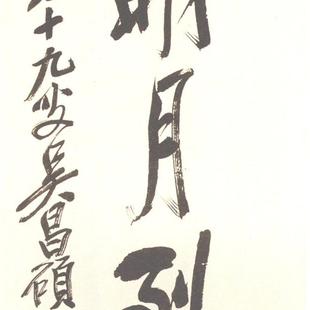 明月到
十九叟吳昌碩